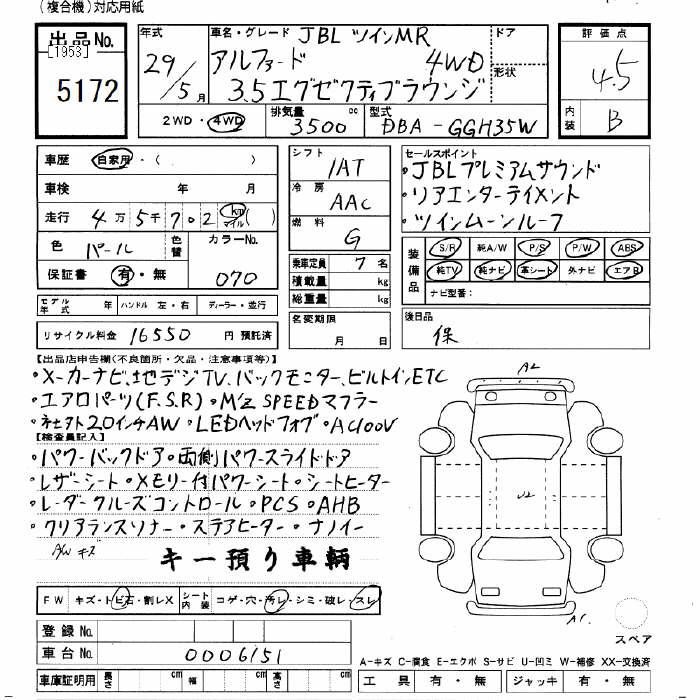 (複合機)対応用紙
出品No.
[1953]
5172
年式
29/5月
車名・グレード JBL ツインMR
アルファード 4WD
3.5エグゼクティブラウンジ
ドア
形状
評価点
4.5
2WD・4WD
排気量 3500 cc
型式 DBA-GGH35W
内装 B
車歴 自家用・( )
車検 年 月
走行 4万5千702 km マイル( )
色 パール 色替
カラーNo. 070
保証書 有・無
シフト 1AT
冷房 AAC
燃料 G
乗車定員 7名
積載量 kg
総重量 kg
セールスポイント
・JBLプレミアムサウンド
・リアエンターテイメント
・ツインムーンルーフ
装備品 S/R 純A/W P/S P/W ABS
純TV 純ナビ 革シート 外ナビ エアB
ナビ型番:
モデル年式 年 ハンドル 左・右 ディーラー・並行
名変期限
月 日
後日品
保
リサイクル料金 16550 円 預託済
【出品店申告欄(不良箇所・欠品・注意事項等)】
・メーカーナビ、地デジTV、バックモニター、ビルトインETC
・エアロパーツ(F.S.R)・M'z SPEEDマフラー
・社外20インチAW・LEDヘッドフォグ・AC100V
【検査員記入】
・パワーバックドア・両側パワースライドドア
・レザーシート・メモリー付パワーシート・シートヒーター
・レーダークルーズコントロール・PCS・AHB
・クリアランスソナー・ステアヒーター・ナノイー
A/W キズ
キー預り車輌
A2
U2
A1
スペア
FW キズ・トビ石・割レX シート内装 コゲ・穴・汚レ・シミ・破レ・スレ
登録No.
車台No. 0006151
車庫証明用 長さ cm 幅 cm 高さ cm
A-キズ C-腐食 E-エクボ S-サビ U-凹ミ W-補修 XX-交換済
工具 有・無 ジャッキ 有・無